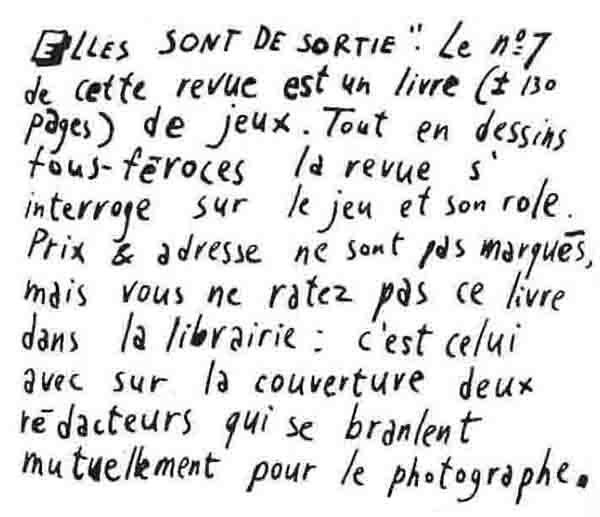 ELLES SONT DE SORTIE": Le nº7
de cette revue est un livre (± 130
pages) de jeux. Tout en dessins
fous-féroces la revue s'
interroge sur le jeu et son role.
Prix & adresse ne sont pas marqués,
mais vous ne ratez pas ce livre
dans la librairie: c'est celui
avec sur la couverture deux
rédacteurs qui se branlent
mutuellement pour le photographe.